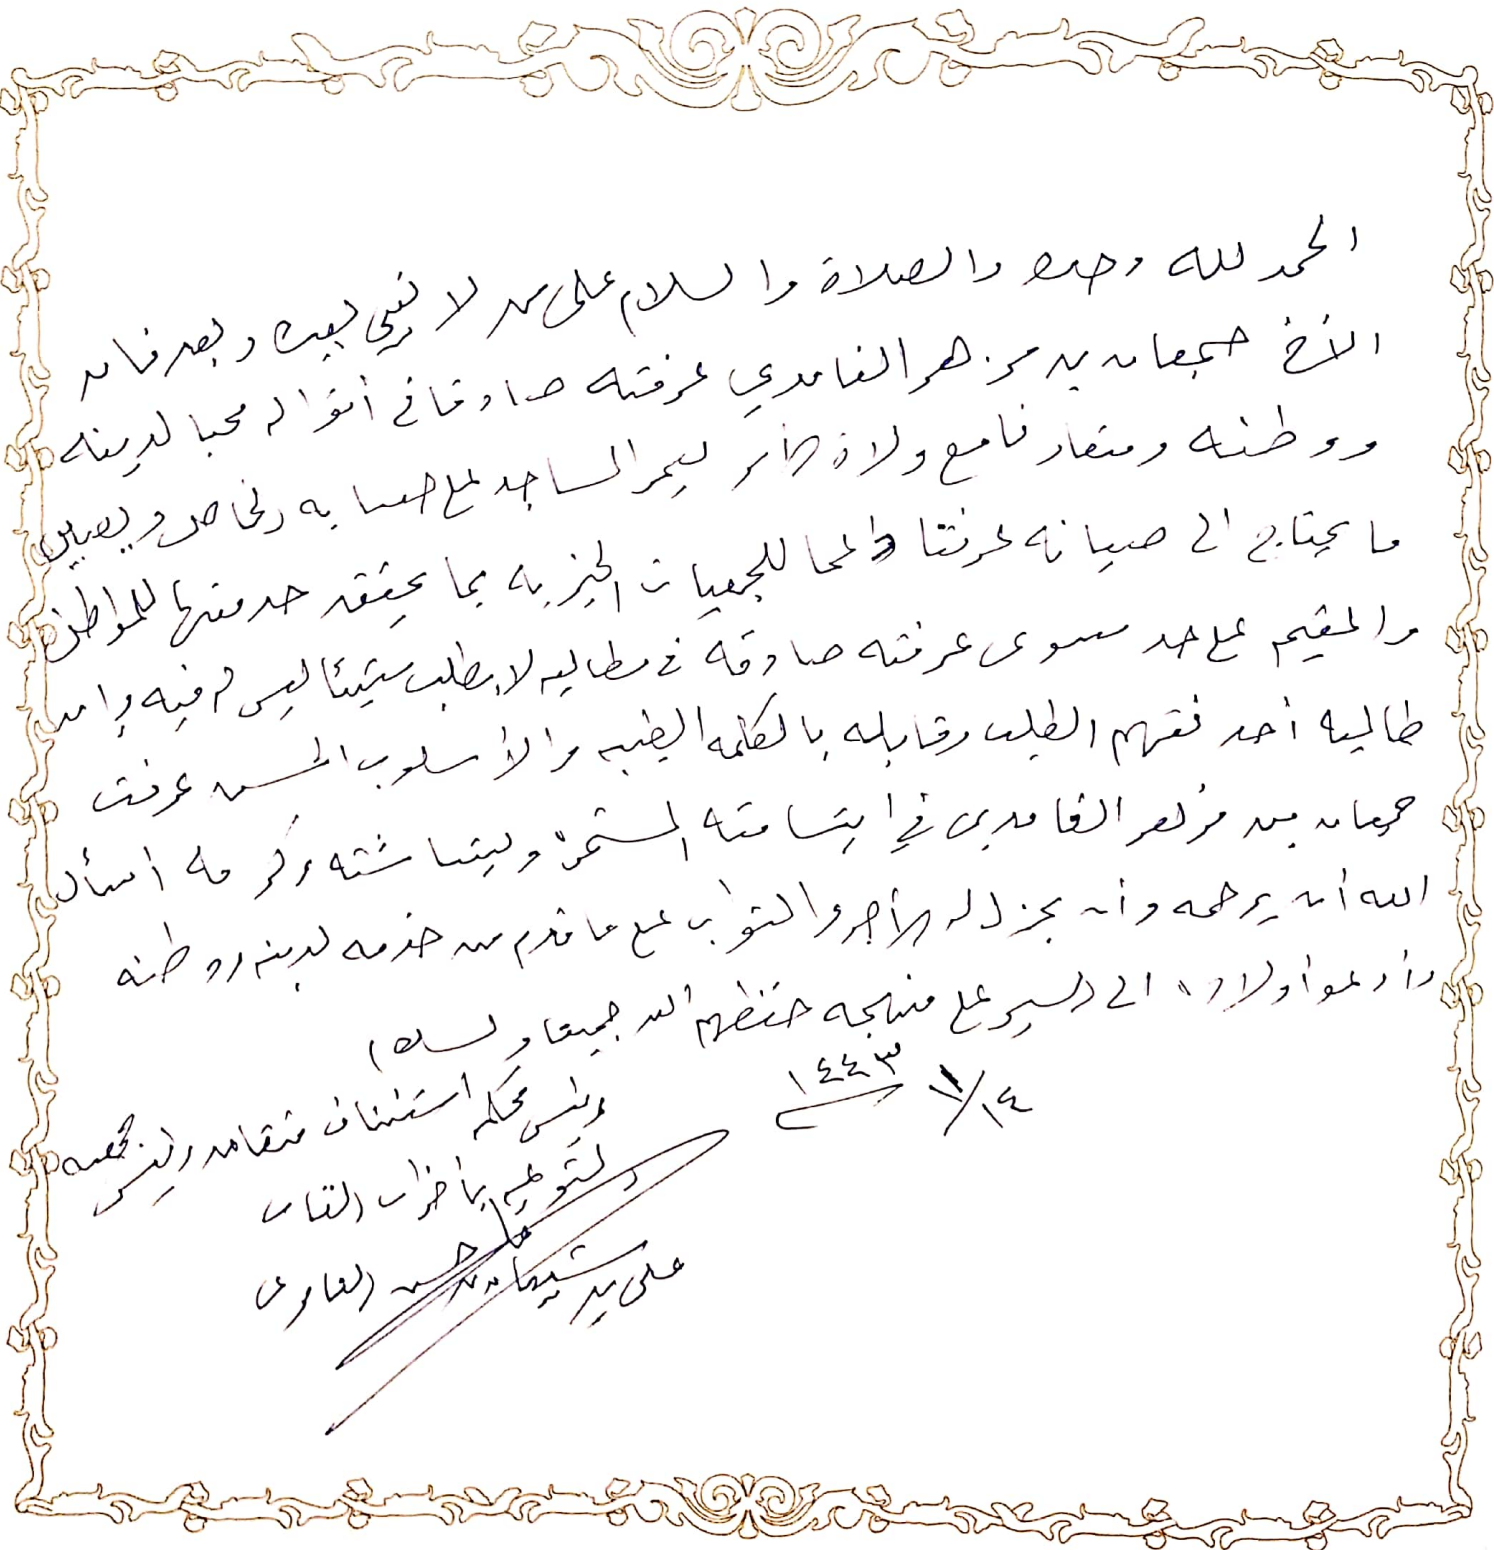 الحمد لله وحده والصلاة والسلام على من لا نبي بعده وبعد فان
الأخ جمعان بن مزهر الغامدي عرفته صادقا في أقواله محبا لدينه
ووطنه ومتعاونا مع ولاة الأمر يعمر المساجد على حسابه الخاص ويصين
ما يحتاج الى صيانه عرفتنا داعما للجمعيات الخيريه بما يحقق خدمتها للمواطن
والمقيم على حد سوى عرفته صادقه في مطالبه لا يطلب شيئا ليس له فيه وان
طالبه أحد تفهم الطلب وقابله بالكلمه الطيبه والأسلوب الحسن عرفت
جمعان بن مزهر الغامدي في ابتسامته المستمرة وبشاشته وكرمه اسأل
الله أن يرحمه وأن يجزل له الأجر والثواب على ما قدم من خدمه لدينه ووطنه
وأدعو أولاده الى السير على منهجه حفظهم الله جميعا والسلام
١٤/١/١٤٤٣
رئيس محكمة استئناف متقاعد ورئيس جمعيه
التوعيه بأضرار القات
علي بن شيبان بن حسن العامري